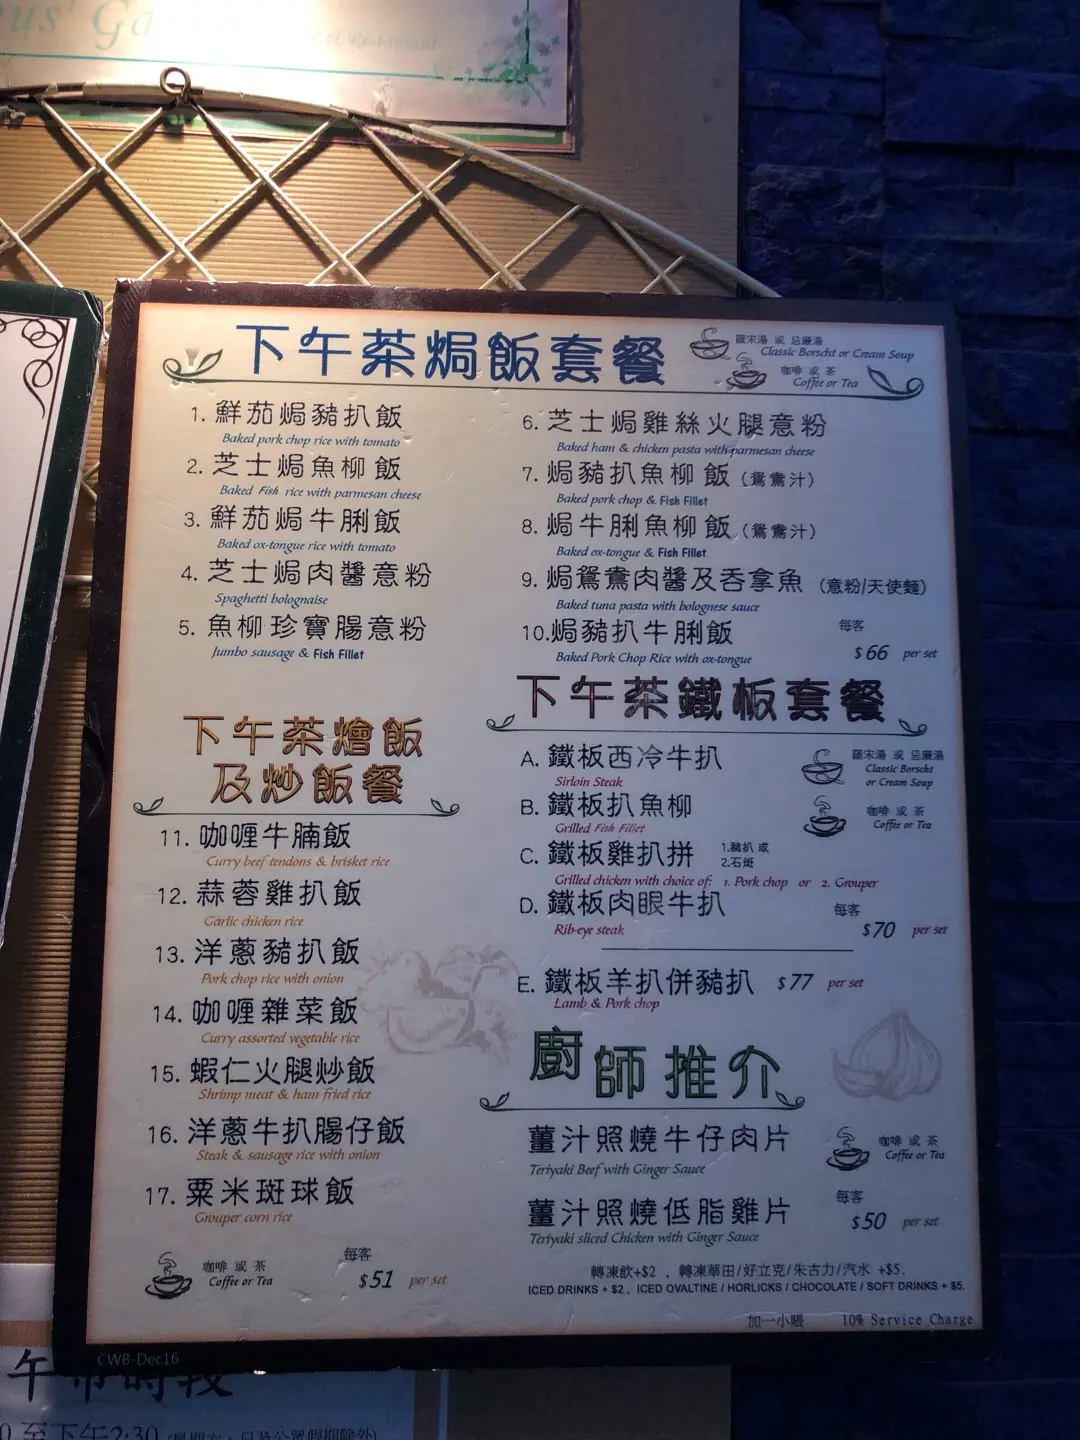 下午茶焗飯套餐
羅宋湯 或 忌廉湯
Classic Borscht or Cream Soup
咖啡 或 茶
Coffee or Tea
1. 鮮茄焗豬扒飯
Baked pork chop rice with tomato
2. 芝士焗魚柳飯
Baked Fish rice with parmesan cheese
3. 鮮茄焗牛脷飯
Baked ox-tongue rice with tomato
4. 芝士焗肉醬意粉
Spaghetti bolognaise
5. 魚柳珍寶腸意粉
Jumbo sausage & Fish Fillet
6. 芝士焗雞絲火腿意粉
Baked ham & chicken pasta with parmesan cheese
7. 焗豬扒魚柳飯 (鴛鴦汁)
Baked pork chop & Fish Fillet
8. 焗牛脷魚柳飯 (鴛鴦汁)
Baked ox-tongue & Fish Fillet
9. 焗鴛鴦肉醬及吞拿魚 (意粉/天使麵)
Baked tuna pasta with bolognese sauce
10.焗豬扒牛脷飯
Baked Pork Chop Rice with ox-tongue
每客
$66 per set
下午茶燴飯
及炒飯餐
11. 咖喱牛腩飯
Curry beef tendons & brisket rice
12. 蒜蓉雞扒飯
Garlic chicken rice
13. 洋蔥豬扒飯
Pork chop rice with onion
14. 咖喱雜菜飯
Curry assorted vegetable rice
15. 蝦仁火腿炒飯
Shrimp meat & ham fried rice
16. 洋蔥牛扒腸仔飯
Steak & sausage rice with onion
17. 粟米斑球飯
Grouper corn rice
咖啡 或 茶
Coffee or Tea
每客
$51 per set
下午茶鐵板套餐
A. 鐵板西冷牛扒
Sirloin Steak
B. 鐵板扒魚柳
Grilled Fish Fillet
C. 鐵板雞扒拼 1.豬扒 或
2.石斑
Grilled chicken with choice of: 1. Pork chop or 2. Grouper
D. 鐵板肉眼牛扒
Rib-eye steak
羅宋湯 或 忌廉湯
Classic Borscht
or Cream Soup
咖啡 或 茶
Coffee or Tea
每客
$70 per set
E. 鐵板羊扒併豬扒 $77 per set
Lamb & Pork chop
廚師推介
薑汁照燒牛仔肉片
Teriyaki Beef with Ginger Sauce
咖啡 或 茶
Coffee or Tea
薑汁照燒低脂雞片
Teriyaki sliced Chicken with Ginger Sauce
每客
$50 per set
轉凍飲+$2 , 轉凍華田/好立克/朱古力/汽水 +$5.
ICED DRINKS + $2 , ICED OVALTINE / HORLICKS / CHOCOLATE / SOFT DRINKS + $5.
加一小賬 10% Service Charge
CWB-Dec16
0 至下午2:30